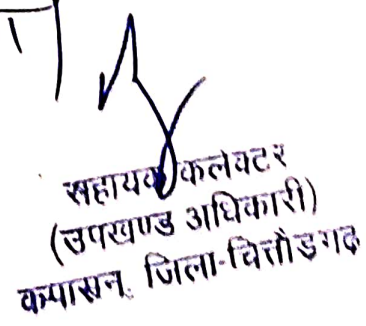 सहायक कलेक्टर
(उपखण्ड अधिकारी)
कपासन, जिला-चित्तौड़गढ़